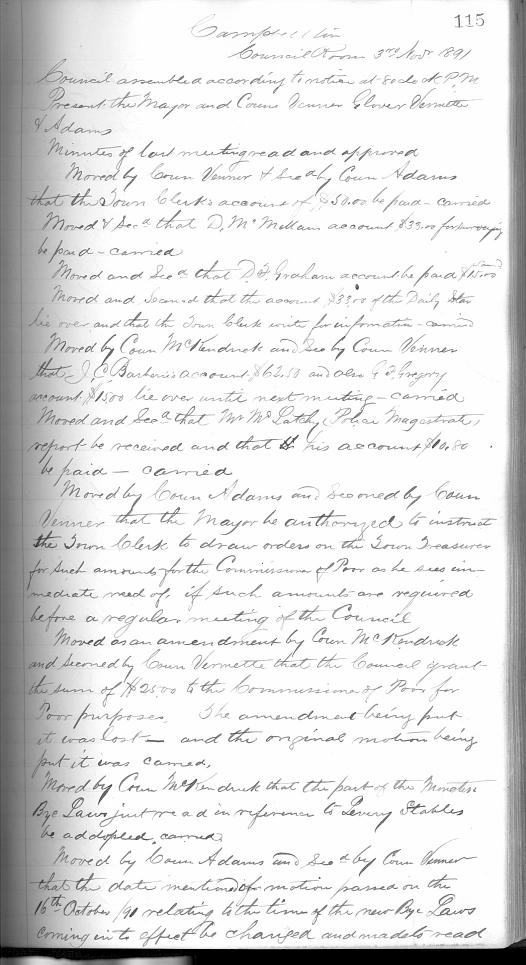 115
Campbellton
Council Room 3rd Nov. 1891
Council assembled according to notice at 8 oclock P.M
Present the Mayor and Couns Venner Glover Vernette
& Adams
Minutes of last meeting read and approved
Moved by Coun Venner & Secd by Coun Adams
that the Town Clerk's account of $50.00 be paid - carried
Moved & Secd that D. McMillan account $33.00 for surveying
be paid - carried
Moved and Secd that D. F. Graham account be paid $15.00 carried
Moved and Second that the account $33.00 of the Daily Star
lie over and that the Town Clerk write for information - carried
Moved by Coun McKendrick and Sec by Coun Venner
that J. C Barberie's account $62.50 and also G F Gregory
account $15.00 lie over until next meeting - carried
Moved and Secd that Mr McLatchy, Police Magestrate,
report be received and that his account $10.80
be paid - carried
Moved by Coun Adams and Seconed by Coun
Venner that the Mayor be authorized to instruct
the Town Clerk to draw orders on the Town Treasurer
for such amounts for the Commissioners of Poor as he sees im-
mediate need of, if such amounts are required
before a regular meeting of the Council
Moved as an amendment by Coun McKendrick
and seconed by Coun Vernette that the Council grant
the sum of $25.00 to the Commissioners of Poor for
Poor purposes. The amendment being put
it was lost - and the original motion being
put it was carried.
Moved by Coun McKendrick that the part of the
Bye Laws just read in reference to Livery Stables
be addopted. carried
Moved by Coun Adams and Secd by Coun Venner
that the date mentioned for motion passed on the
16th October /91 relating to the time of the new Bye Laws
coming in to effect be changed and made to read